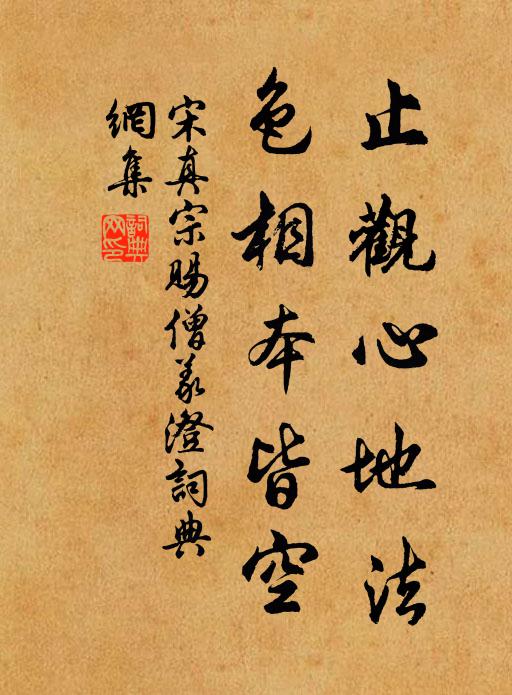 止觀心地法
色相本皆空
宋真宗賜僧義澄詞典
網集
詞典
网印